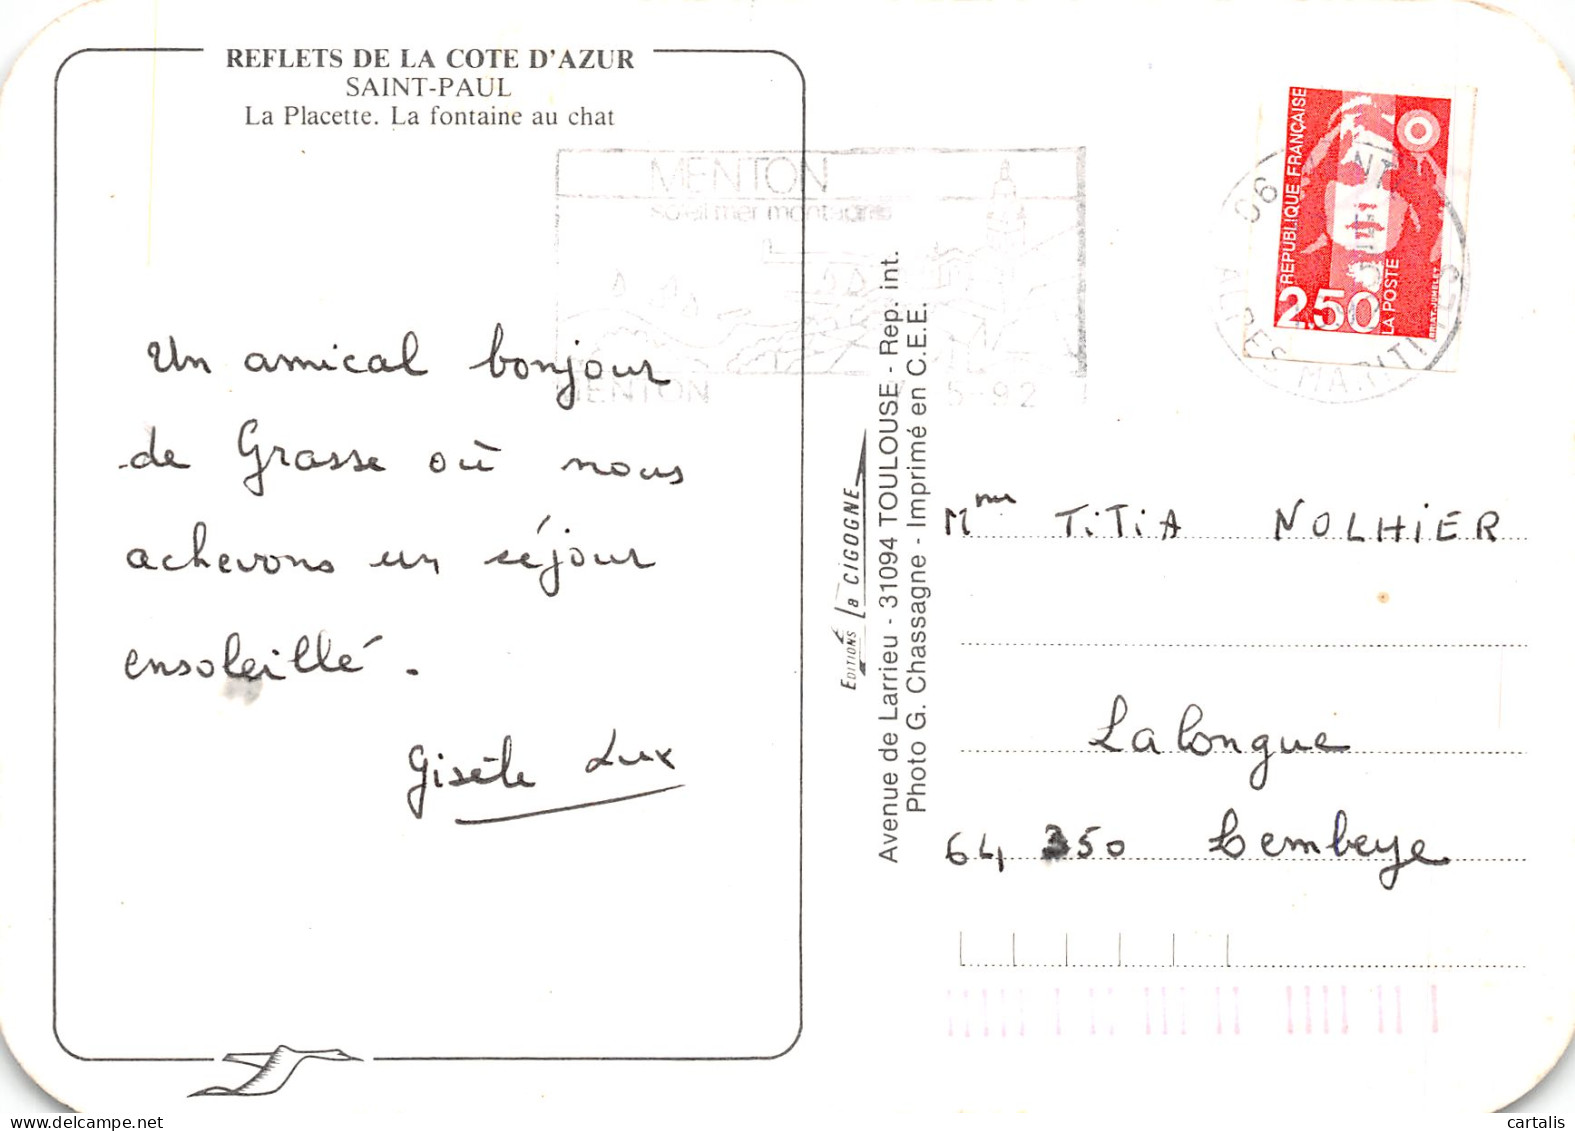 REFLETS DE LA COTE D'AZUR
SAINT-PAUL
La Placette. La fontaine au chat
MENTON
soleil mer montagne
MENTON 5-92
Un amical bonjour
de Grasse où nous
achevons un séjour
ensoleillé.
Gisèle Lux
EDITIONS La CIGOGNE
Avenue de Larrieu - 31094 TOULOUSE - Rep. int.
Photo G. Chassagne - Imprimé en C.E.E.
REPUBLIQUE FRANÇAISE
2,50
LA POSTE
BRIAT-JUMELET
06
ALPES MARITIMES
Mme TiTiA NOLHiER
Lalongue
64 350 Lembeye
cartalis
delcampe.net